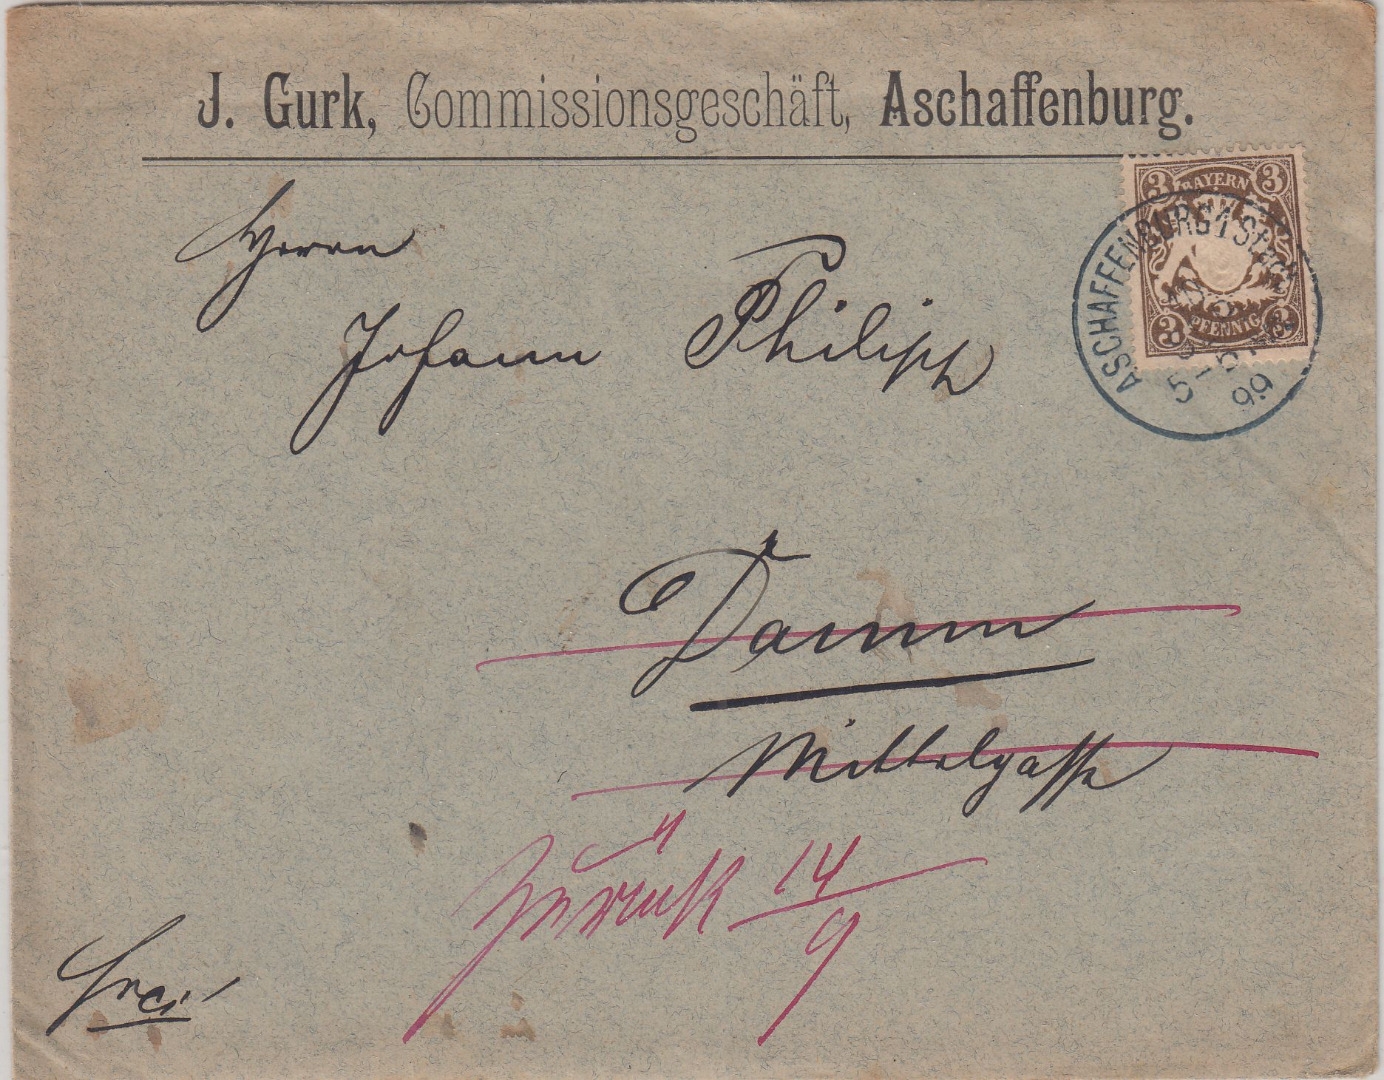 J. Gurk, Commissionsgeschäft, Aschaffenburg.
3 BAYERN 3
3 PFENNIG 3
ASCHAFFENBURG 1 Stadt
5-6
99
Herrn
Johann Philipp
Damm
Mittelgasse
Zurück 14/9
frei